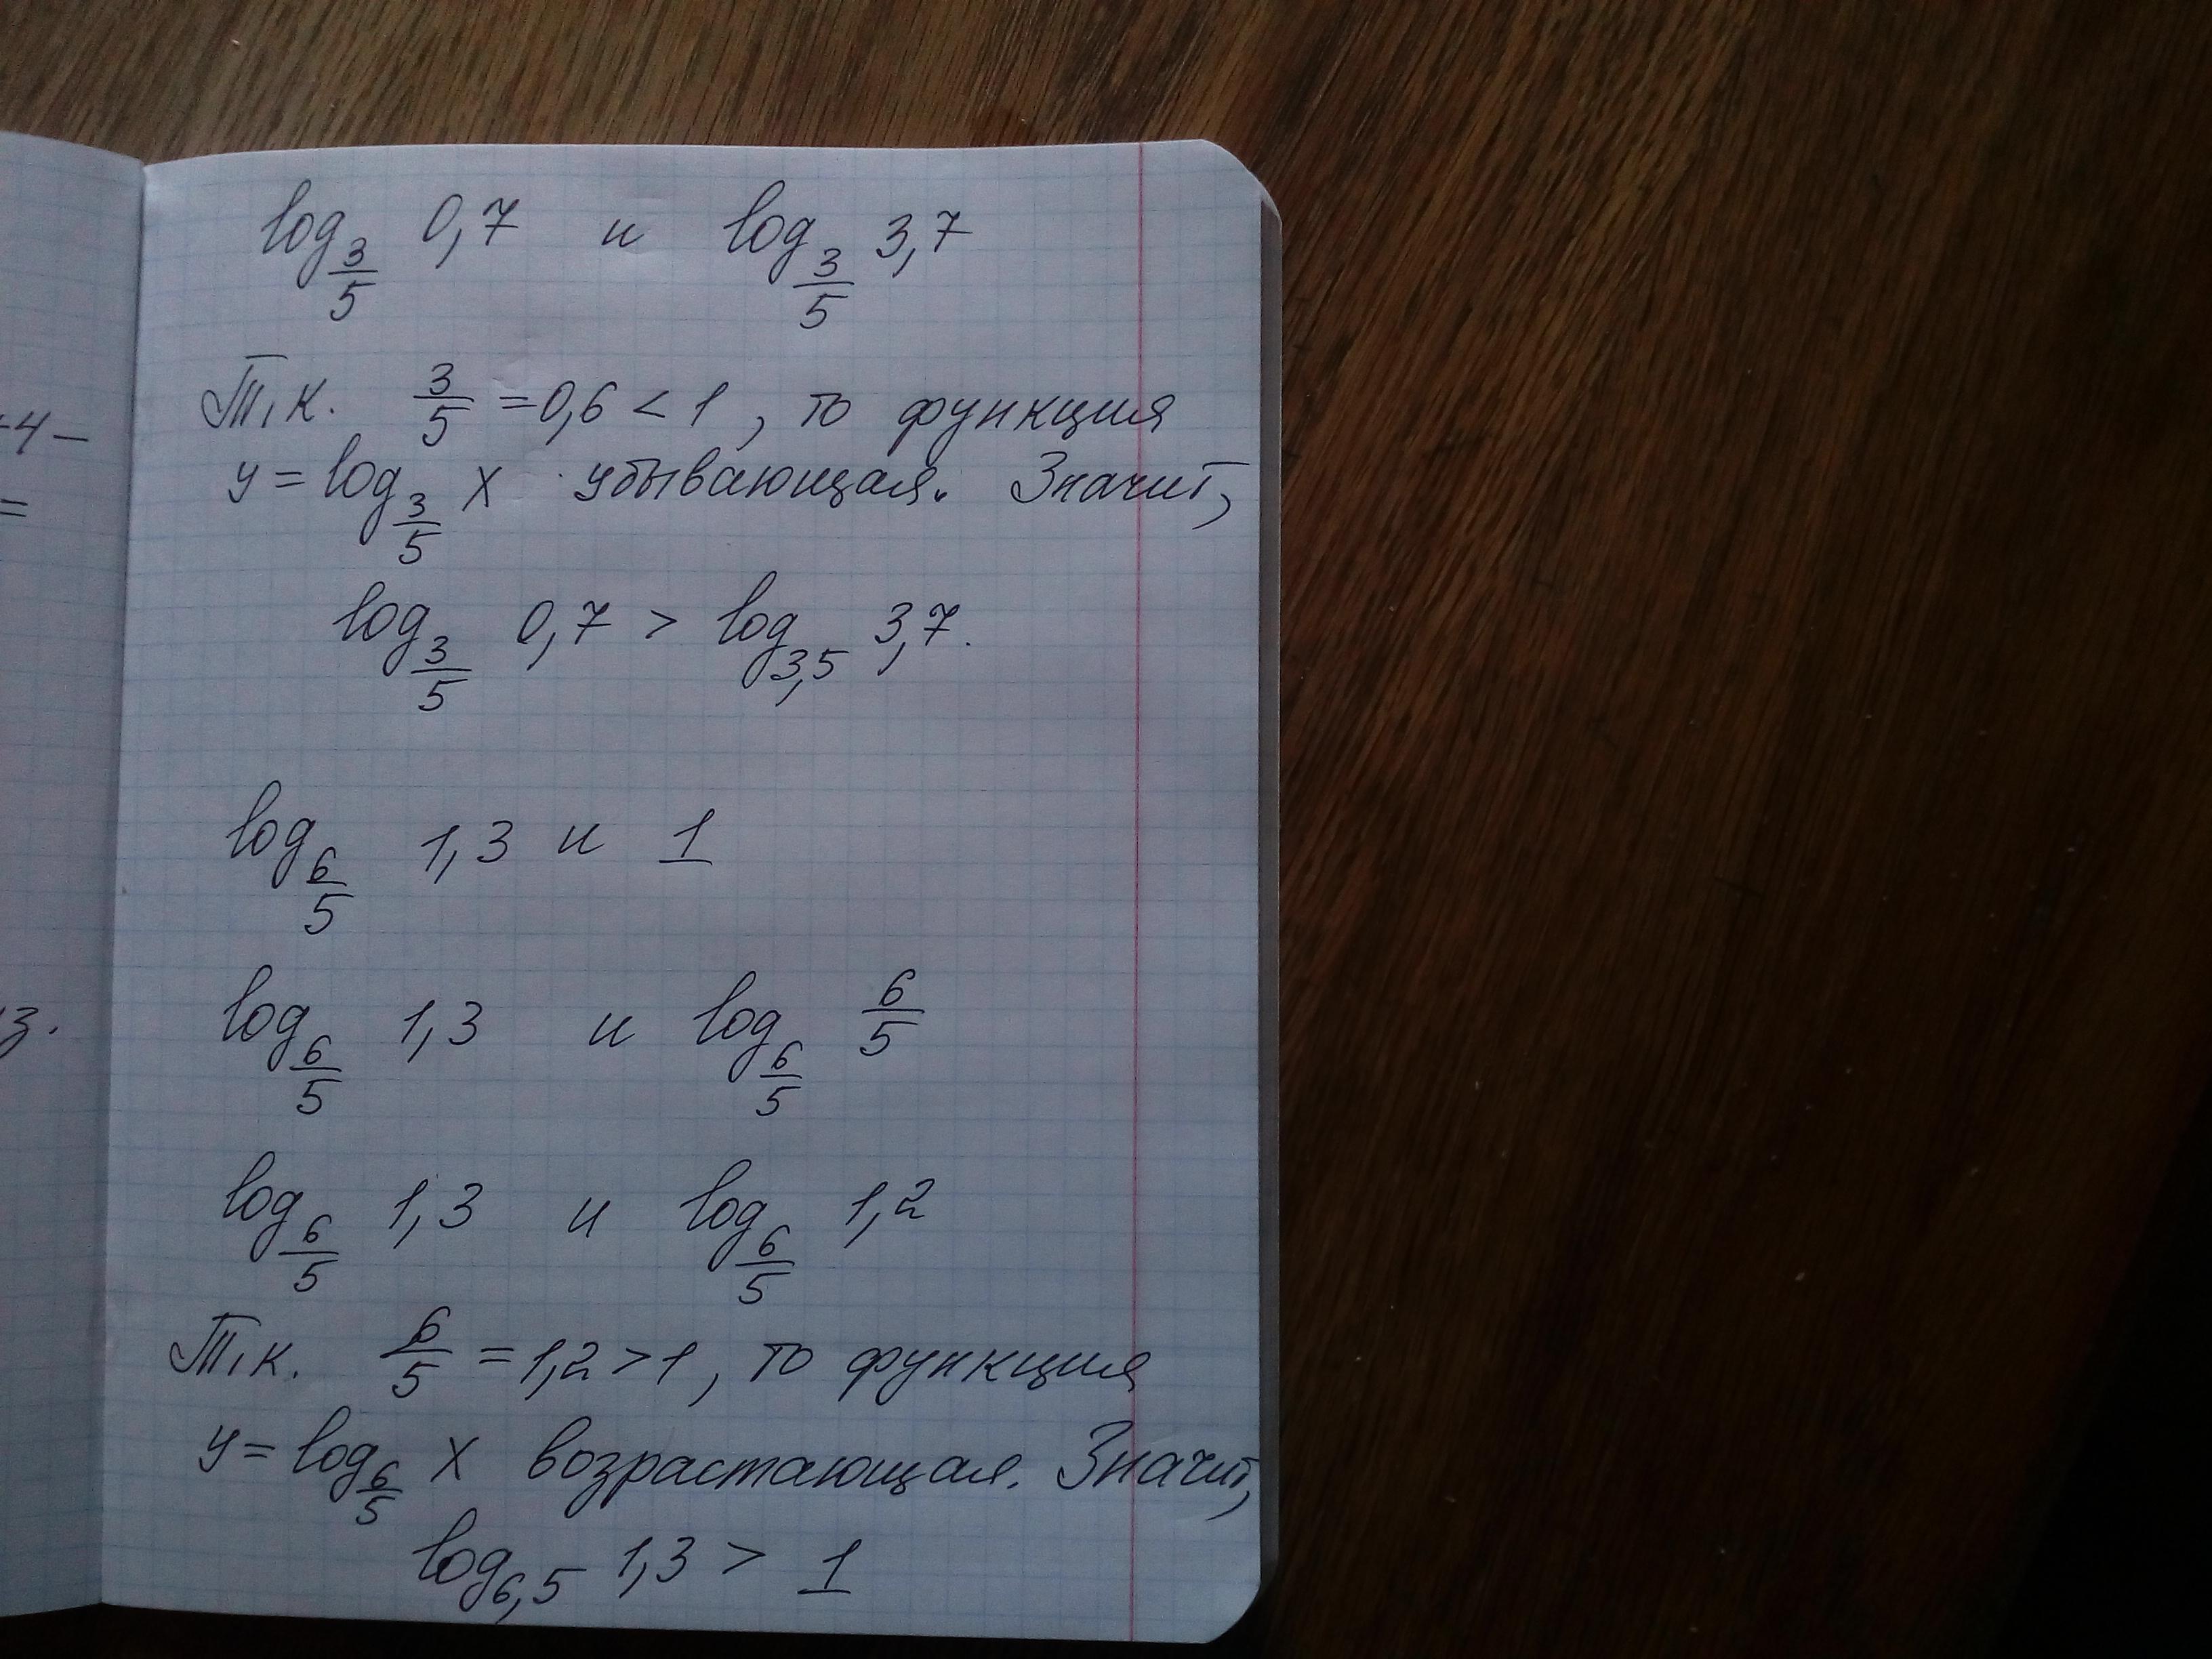 log_{3/5} 0,7 и log_{3/5} 3,7
Т.к. 3/5 = 0,6 < 1, то функция
y = log_{3/5} x убывающая. Значит,
log_{3/5} 0,7 > log_{3,5} 3,7.
log_{6/5} 1,3 и 1
log_{6/5} 1,3 и log_{6/5} 6/5
log_{6/5} 1,3 и log_{6/5} 1,2
Т.к. 6/5 = 1,2 > 1, то функция
y = log_{6/5} x возрастающая. Значит,
log_{6,5} 1,3 > 1
-4-
=
з.